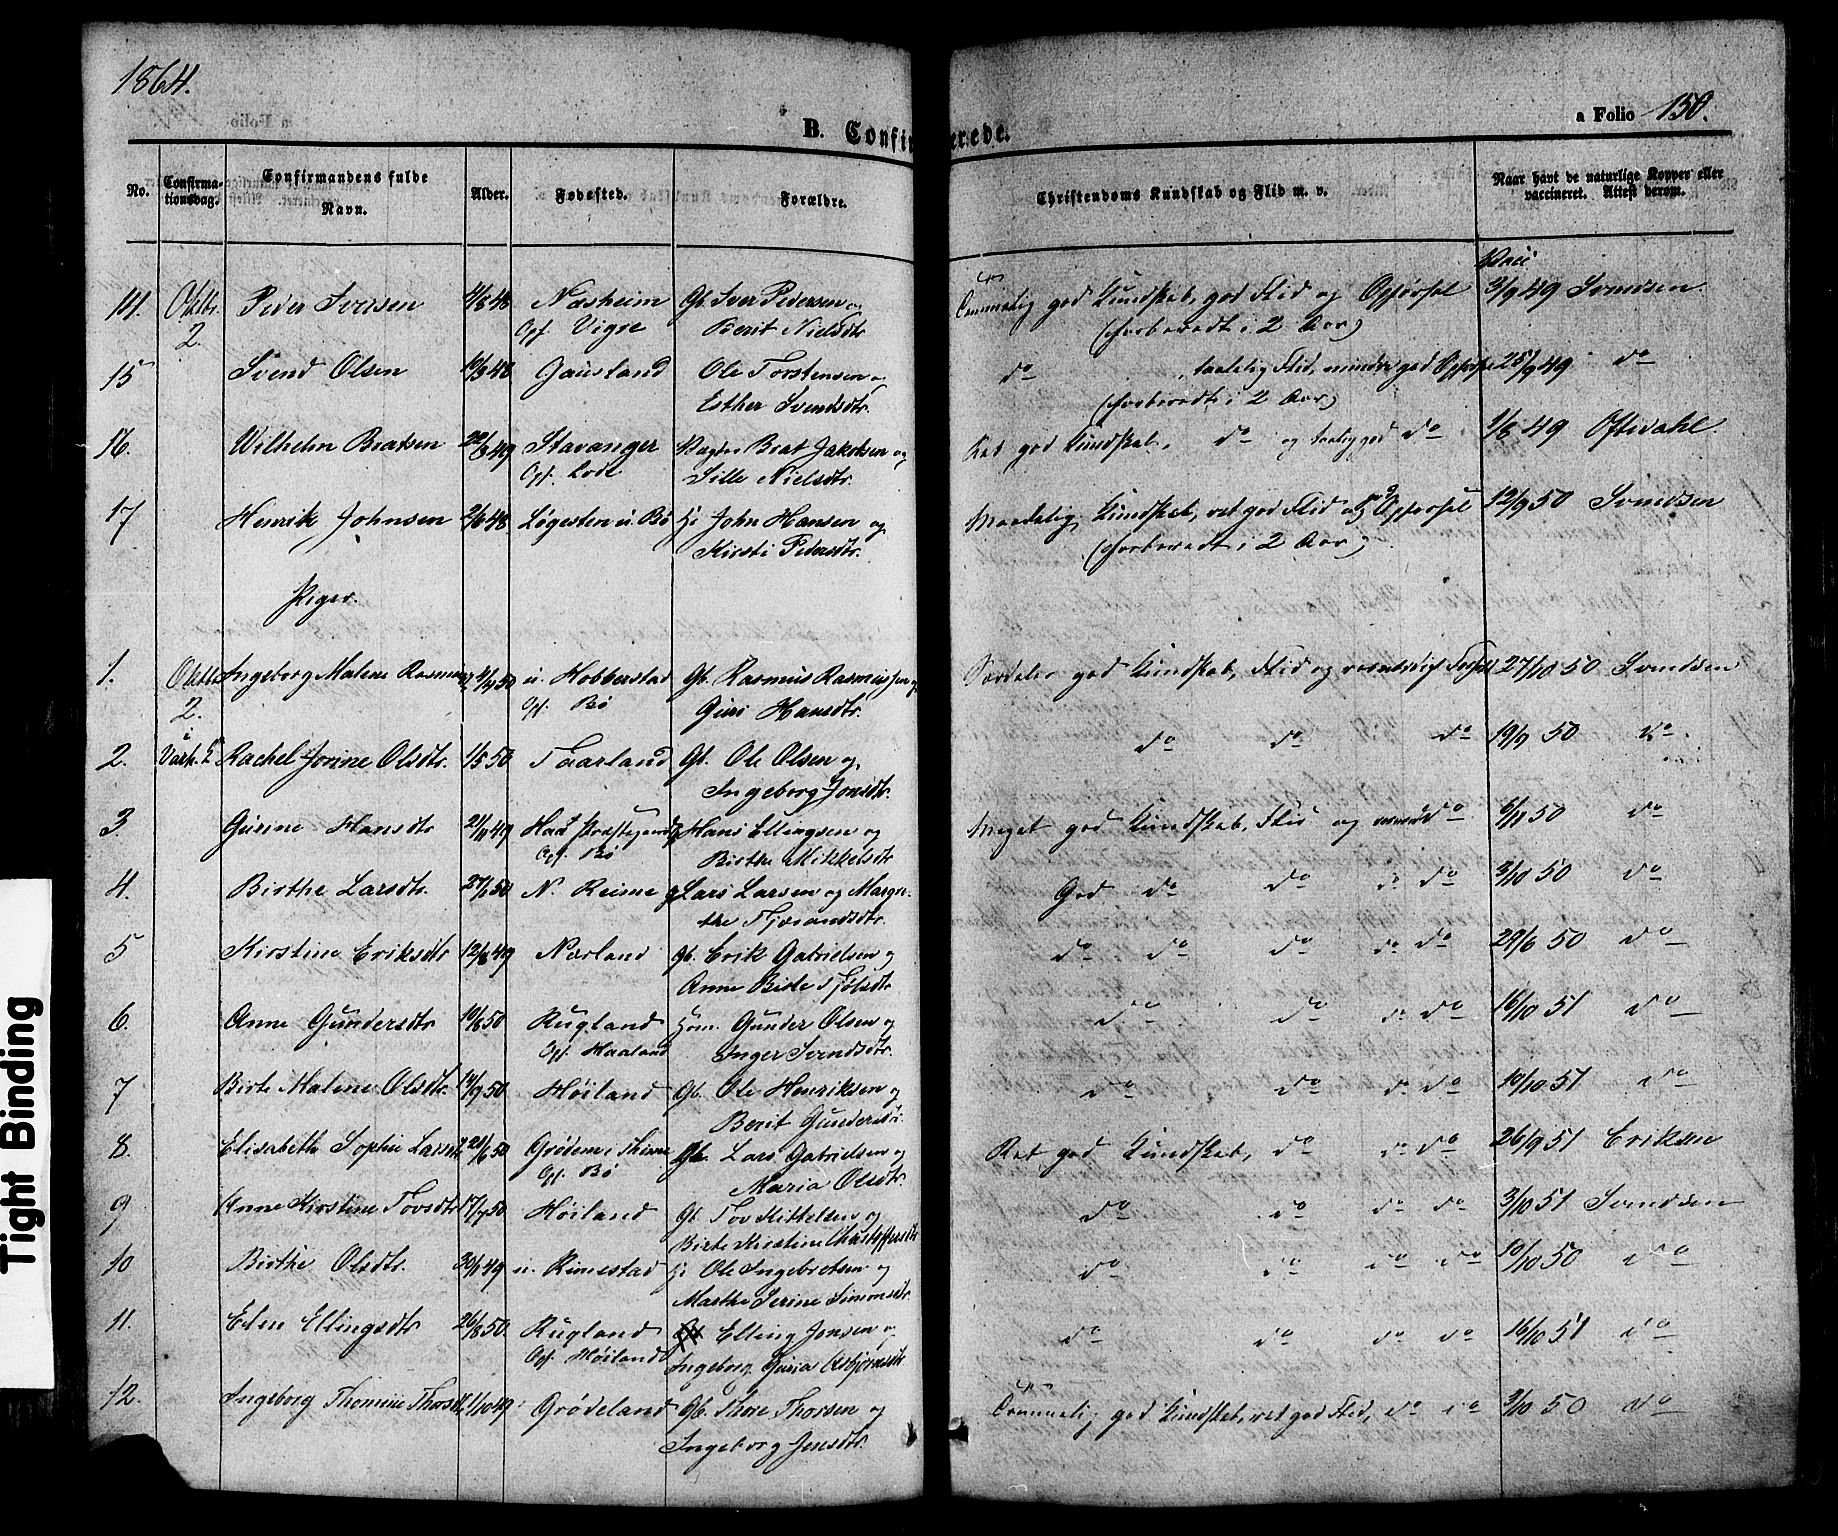 1864.
a Folio 150.
B. Confirmerede.
No. Confirmationsdag. Confirmandens fulde Navn. Alder. Fødested. Forældre. Christendoms Kundskab og Flid m. v. Naar havt de naturlige Kopper eller vaccineret. Attest derom.
Vacc
14. Oktbr. Peder Iversen 4/8 48 Næsheim Gb. Iver Pedersen og Temmelig god Kundskab, god Flid og Opførsel 3/9 49 Svendsen
2. Opf. Vigre Berit Nielsdtr. (forberedt i 2 Aar)
15 Svend Olsen 10/3 48 Gausland Ole Torstensen og do , taalelig Flid, mindre god Opførsel 25/9 49 do
Esther Svendsdtr. (forberedt i 2 Aar)
16. Wilhelm Beatsen 22/3 49 Stavanger Beat Jakobsen og Ret god Kundskab, do og do 1/8 49 Oftedahl
Opf. Lode Sille Nielsdtr.
17 Henrik Johnsen 2/6 48 Løgesten u. Bø Hj John Hansen og Maadelig Kundskab, ret god Flid og Opførsel 12/9 50 Svendsen
Kirsti Pedersdtr. (forberedt i 2 Aar)
Piger.
1. Oktbr Ingeborg Malene 4/4 50 u. Hobberstad Gb. Rasmus Rasmussen og Særdeles god Kundskab, Flid og 27/10 50 Svendsen
2. Opf. Bø Guri Hansdtr.
i
2. Varh. Rachel Jorine Olsdtr. 1/5 50 Taarland Gb. Ole Olsen og do do do 19/9 50 do.
Ingeborg Jonsdtr.
3. Gurine Hansdtr 21/11 49 Haa Præstegaard Hans Ellingsen og Meget god Kundskab, Flid og do 5/11 50 do
Opf. Bø Birthe Mikkelsdtr
4. Birthe Larsdtr. 27/1 50 N. Reime Lars Larsen og Margre- God do do do do 3/10 50 do
the Tjærandsdtr.
5 Kirstine Eriksdtr 12/8 49 Nærland Gb. Erik Gabrielsen og do do do do do 29/6 50 do
Anne Birte Tjølsdtr
6. Anne Gundersdtr 10/8 50 Rugland Hsm. Gunder Olsen og do do do do 16/10 51 do
Opf. Haaland Inger Svendsdtr.
7 Birte Malene Olsdtr. 14/9 50 Høiland Gb. Ole Henriksen og do do do do 10/10 51 do
Berit Gundersdtr.
8. Elisabeth Sophie Larsdtr 21/6 50 Grødem i Thime Gb. Lars Gabrielsen og Ret god Kundskab, do do do 26/9 51 Eriksen
Opf. Bø Maria Olsdtr.
9 Anne Kirstine Tovsdtr 17/7 50 Høiland Gb Tov Kittelsen og do do do do 3/10 51 Svendsen
Birte Kirstine Christoffersdtr
10 Birthe Olsdtr. 30/11 49 u. Rimestad Hj Ole Ingebretsen og do do do do 10/10 50 do
Marthe Serine Simonsdtr.
11. Elen Ellingsdtr 26/8 50. Rugland Elling Jonsen og do do do do 16/10 51 do
Opf. Høiland Ingeborg Guria Asbjørnsdtr
12. Ingeborg Thomine Thorsdtr 11/10 49 Grødeland Gb. Thore Thorsen og Temmelig god Kundskab, ret god Flid, do do 3/10 50 do
Ingeborg Jonsdtr.
Tight Binding